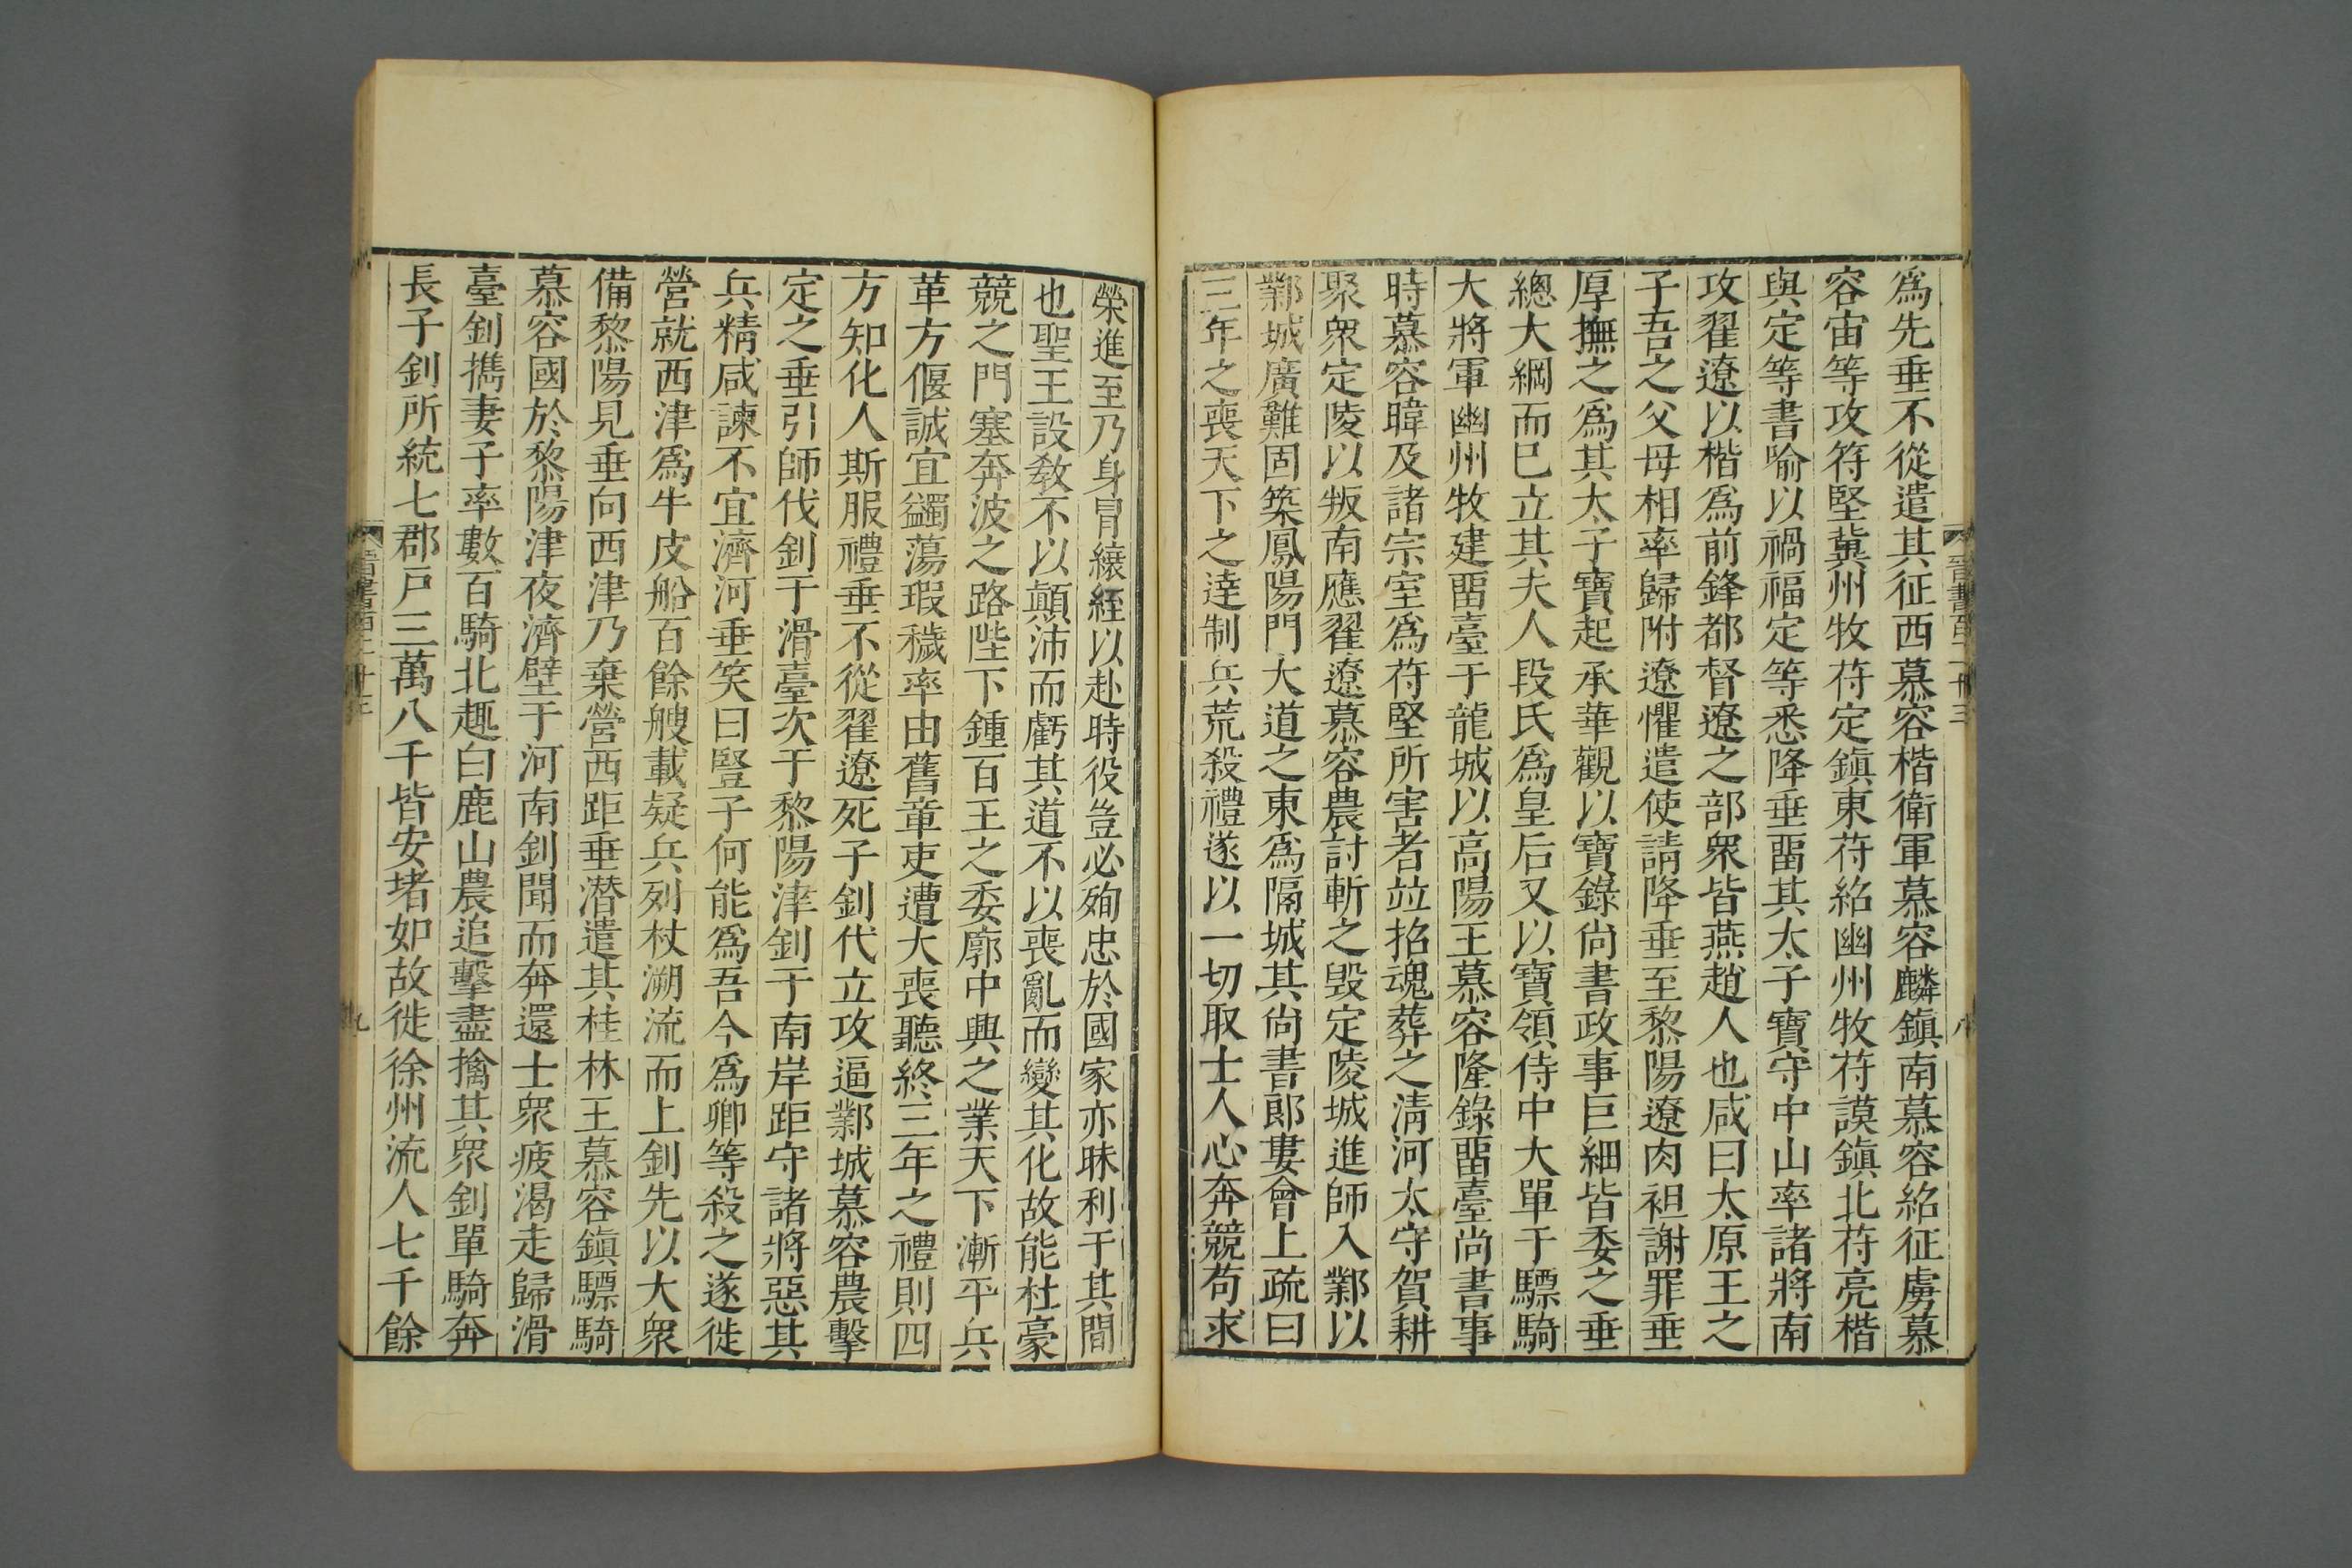 爲先垂不從遣其征西慕容楷衛軍慕容麟鎭南慕容紹征虜慕
容宙等攻苻堅冀州牧苻定鎭東苻紹幽州牧苻謨鎭北苻亮楷
與定等書喻以禍福定等悉降垂畱其太子寶守中山率諸將南
攻翟遼以楷爲前鋒都督遼之部衆皆燕趙人也咸曰太原王之
子吾之父母相率歸附遼懼遣使請降垂至黎陽遼肉袒謝罪垂
厚撫之爲其太子寶起承華觀以寶錄尙書政事巨細皆委之垂
總大綱而已立其夫人段氏爲皇后又以寶領侍中大單于驃騎
大將軍幽州牧建畱臺于龍城以高陽王慕容隆錄畱臺尙書事
時慕容暐及諸宗室爲苻堅所害者竝招魂葬之淸河太守賀耕
聚衆定陵以叛南應翟遼慕容農討斬之毀定陵城進師入鄴以
鄴城廣難固築鳳陽門大道之東爲隔城其尙書郎婁會上疏曰
三年之喪天下之達制兵荒殺禮遂以一切取士人心奔競苟求
榮進至乃身冒縗絰以赴時役豈必殉忠於國家亦昧利于其間
也聖王設敎不以顚沛而虧其道不以喪亂而變其化故能杜豪
競之門塞奔波之路陛下鍾百王之委廓中興之業天下漸平兵
革方偃誠宜蠲蕩瑕穢率由舊章吏遭大喪聽終三年之禮則四
方知化人斯服禮垂不從翟遼死子釗代立攻逼鄴城慕容農擊
定之垂引師伐釗于滑臺次于黎陽津釗于南岸距守諸將惡其
兵精咸諫不宜濟河垂笑曰豎子何能爲吾今爲卿等殺之遂徙
營就西津爲牛皮船百餘艘載疑兵列杖溯流而上釗先以大衆
備黎陽見垂向西津乃棄營西距垂潛遣其桂林王慕容鎭驃騎
慕容國於黎陽津夜濟壁于河南釗聞而奔還士衆疲渴走歸滑
臺釗攜妻子率數百騎北趣白鹿山農追擊盡擒其衆釗單騎奔
長子釗所統七郡戶三萬八千皆安堵如故徙徐州流人七千餘